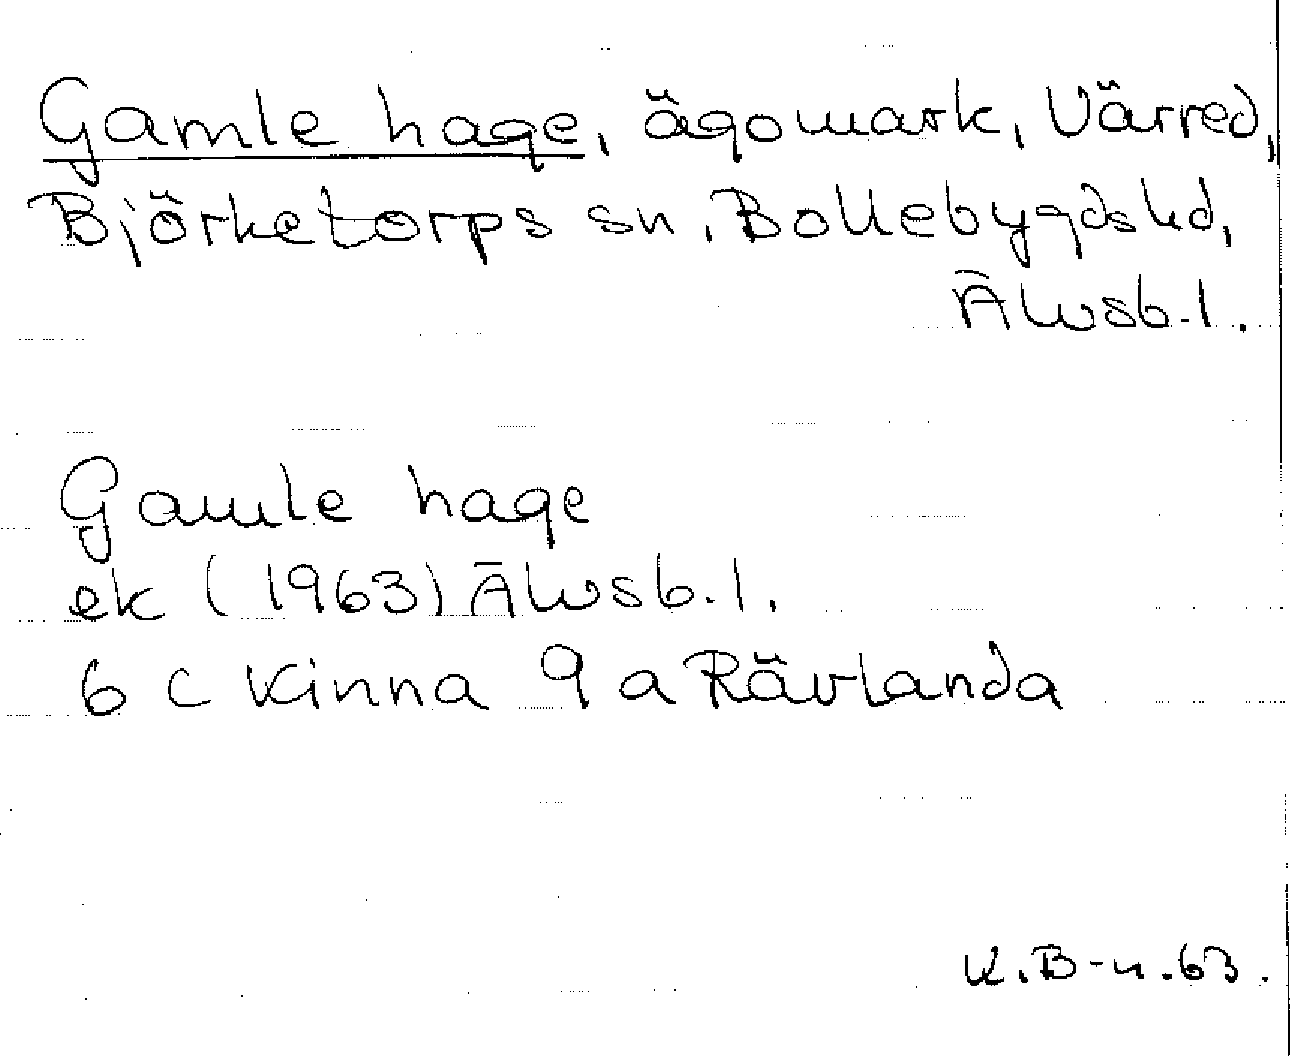 Gamle hage, ägomark, Värred,
Björketorps sn, Bollebygds hd,
Älvsb. l.
Gamle hage
ek (1963) Älvsb. l.
6 c Kinna 9 a Rävlanda
K.B-n.63.